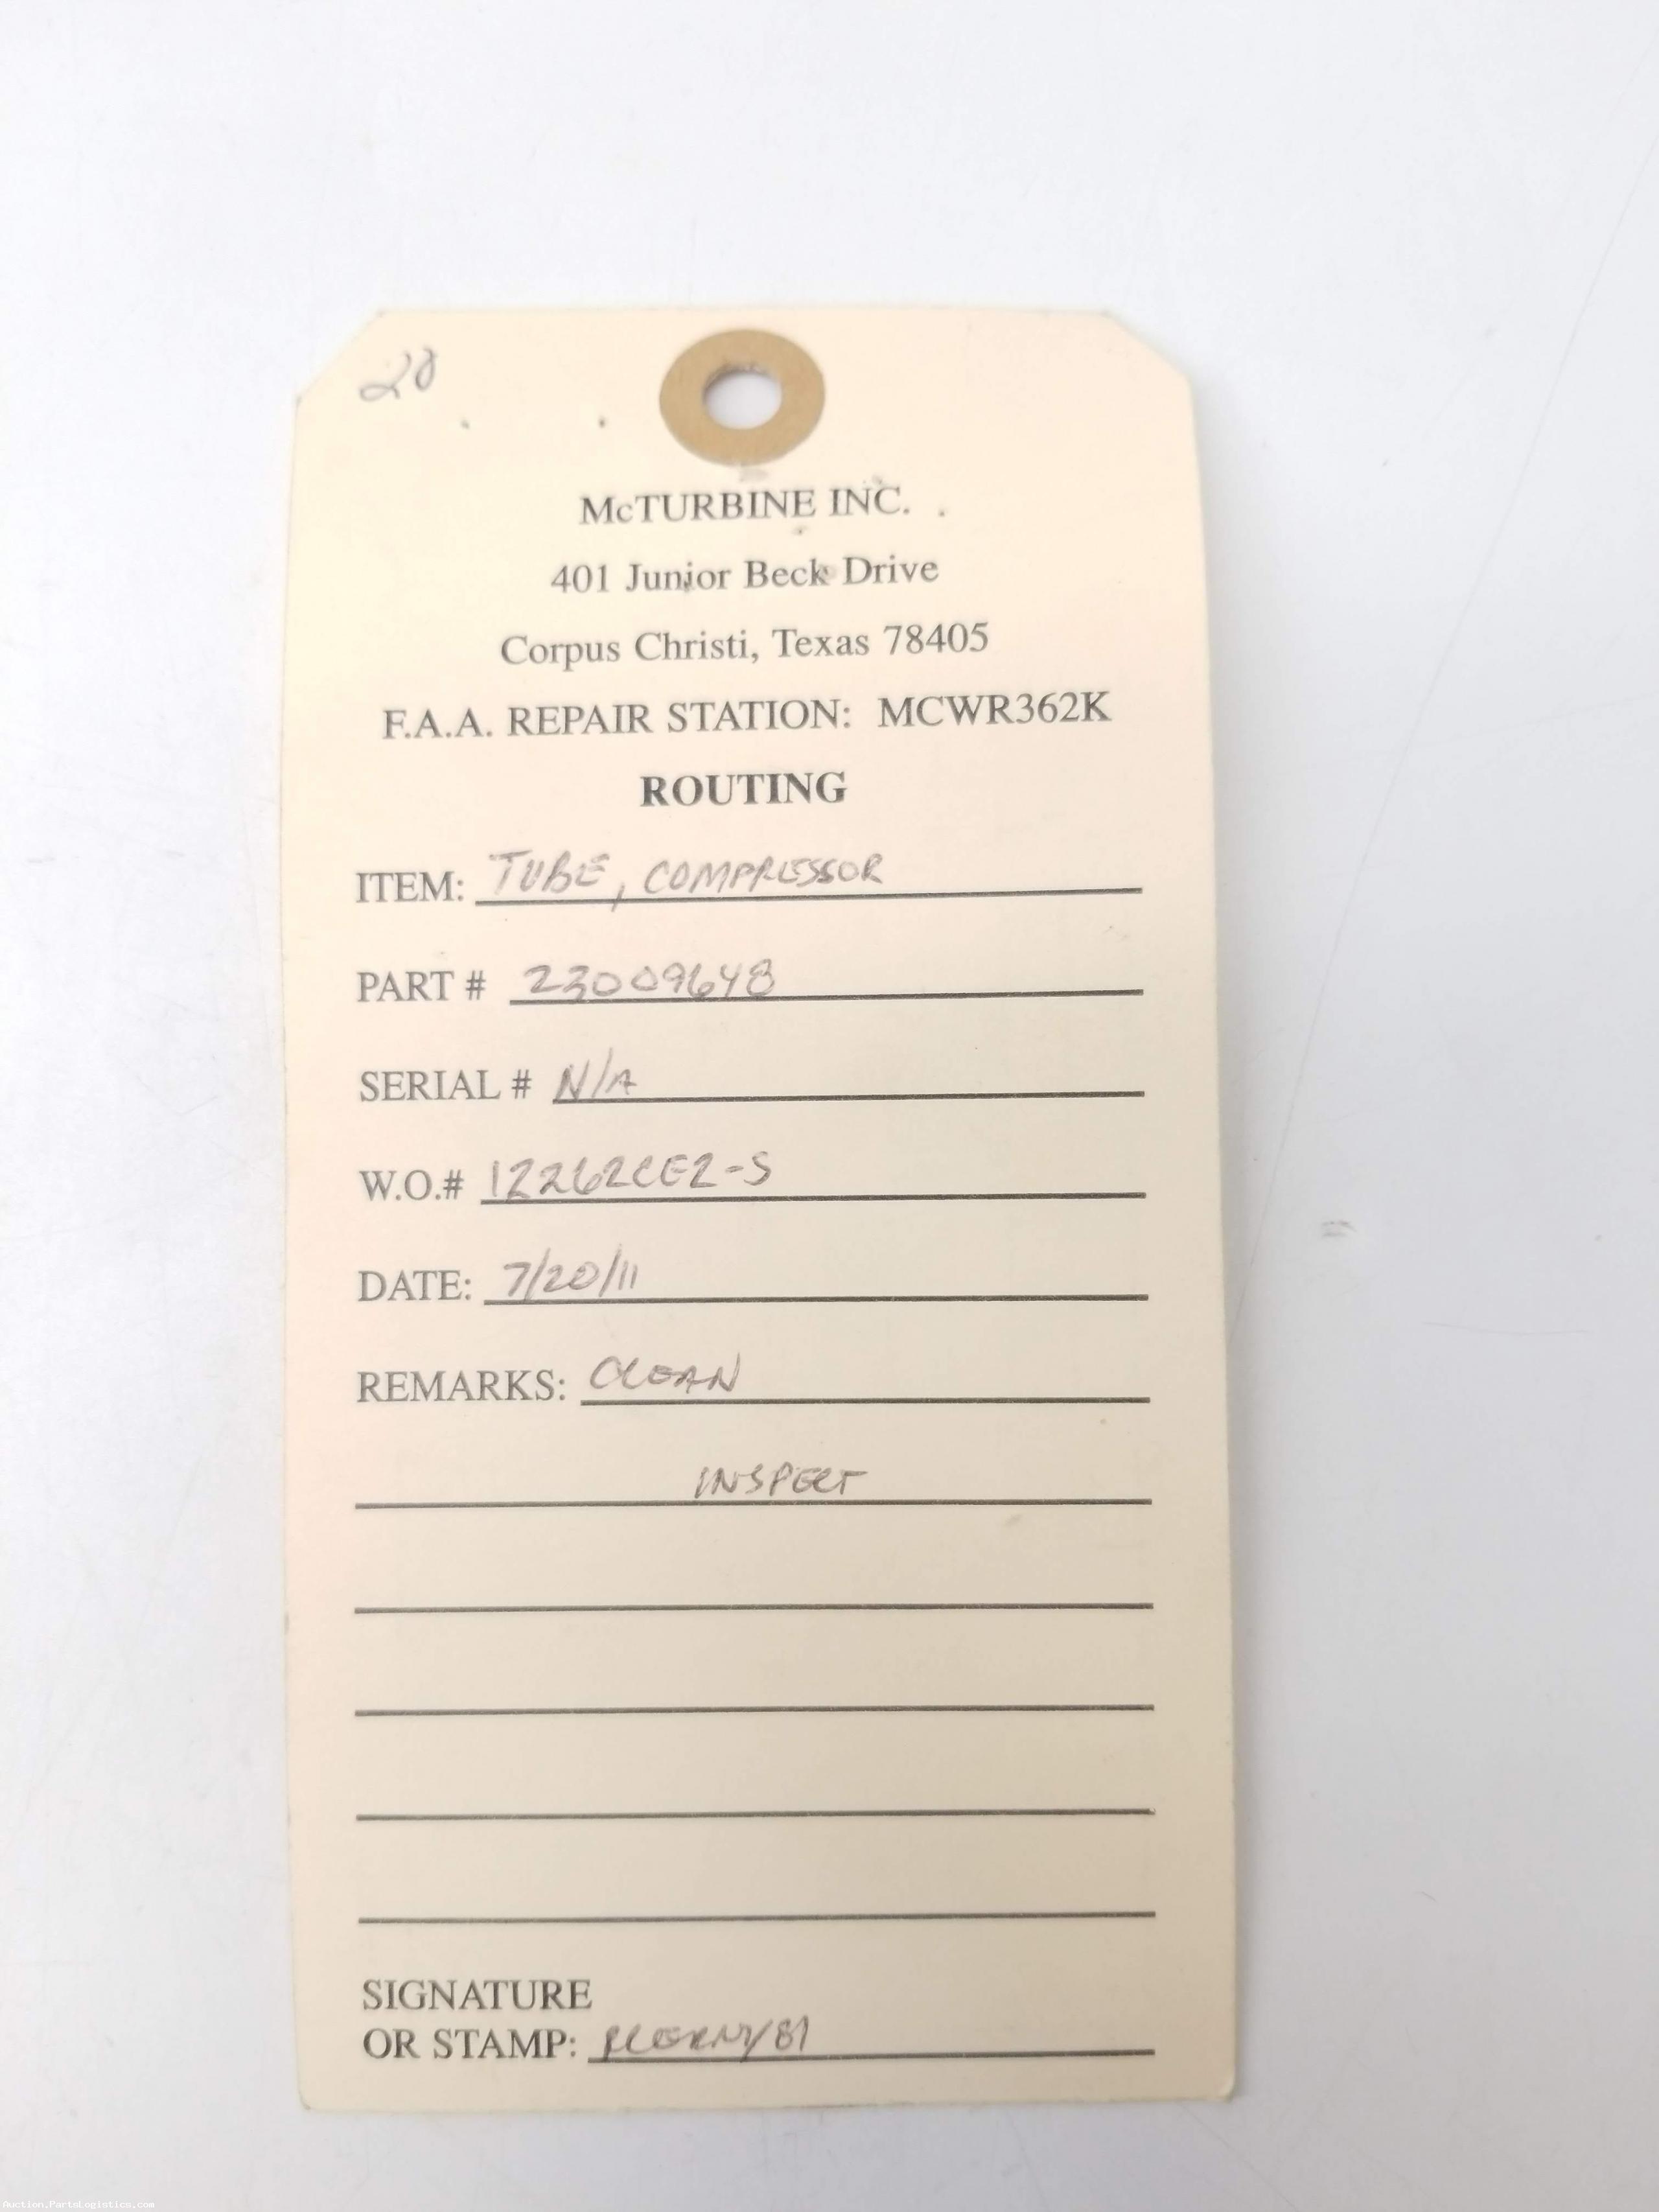 20
McTURBINE INC.
401 Junior Beck Drive
Corpus Christi, Texas 78405
F.A.A. REPAIR STATION: MCWR362K
ROUTING
ITEM: TUBE, COMPRESSOR
PART # 23009648
SERIAL # N/A
W.O.# 12262CE2-S
DATE: 7/20/11
REMARKS: CLEAN
INSPECT
SIGNATURE
OR STAMP:
Auction.PartsLogistics.com